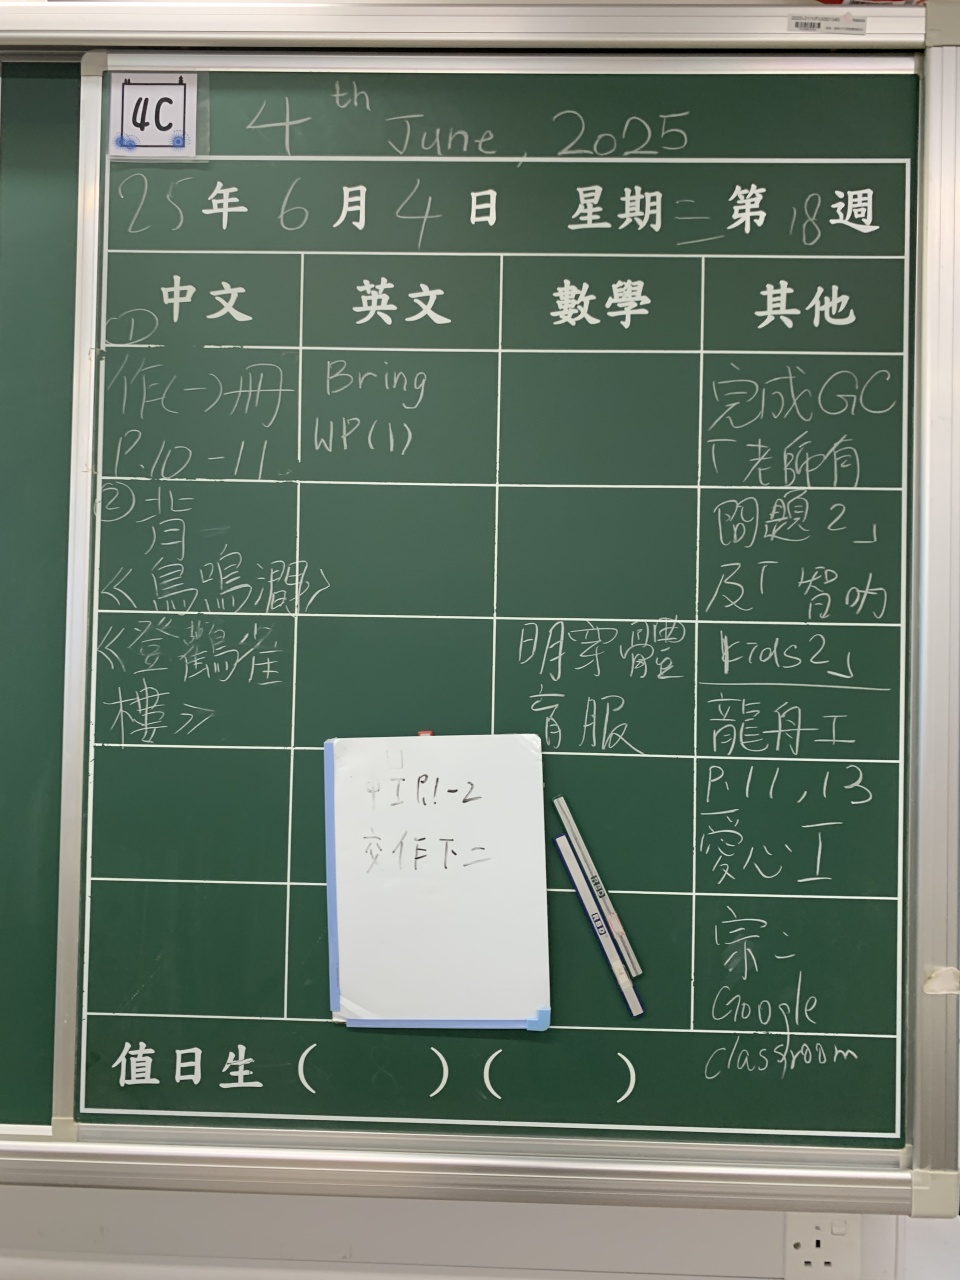 4C
4th June, 2025
25年6月4日 星期二 第18週
中文 英文 數學 其他
①
作(一)冊
P.10-11
②背
《鳥鳴澗》
《登鸛雀
樓》
Bring
WP(1)
明穿體
育服
完成GC
「老師有
問題2」
及「智叻
kids2」
龍舟工
P.11,13
愛心工
宗二
Google
classroom
中工P.1-2
交作下二
值日生( )( )